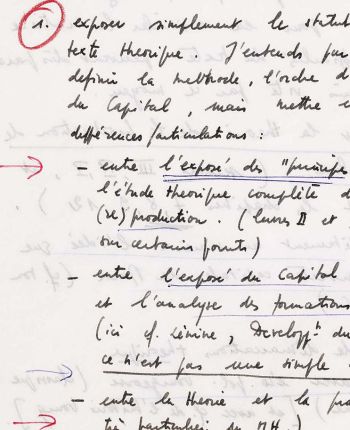 1. exposer simplement le statut
texte théorique. J'entends par
définir la méthode, l'ordre d
du Capital, mais mettre e
différences / articulations :
– entre l'exposé des "principe
l'étude théorique complète d
(re)production. (livres II et
sur certains points)
– entre l'exposé du Capital
et l'analyse des formations
(ici cf. Lénine, Developpt du
ce n'est pas une simple
– entre la théorie et la pra
très particulier du MH.)